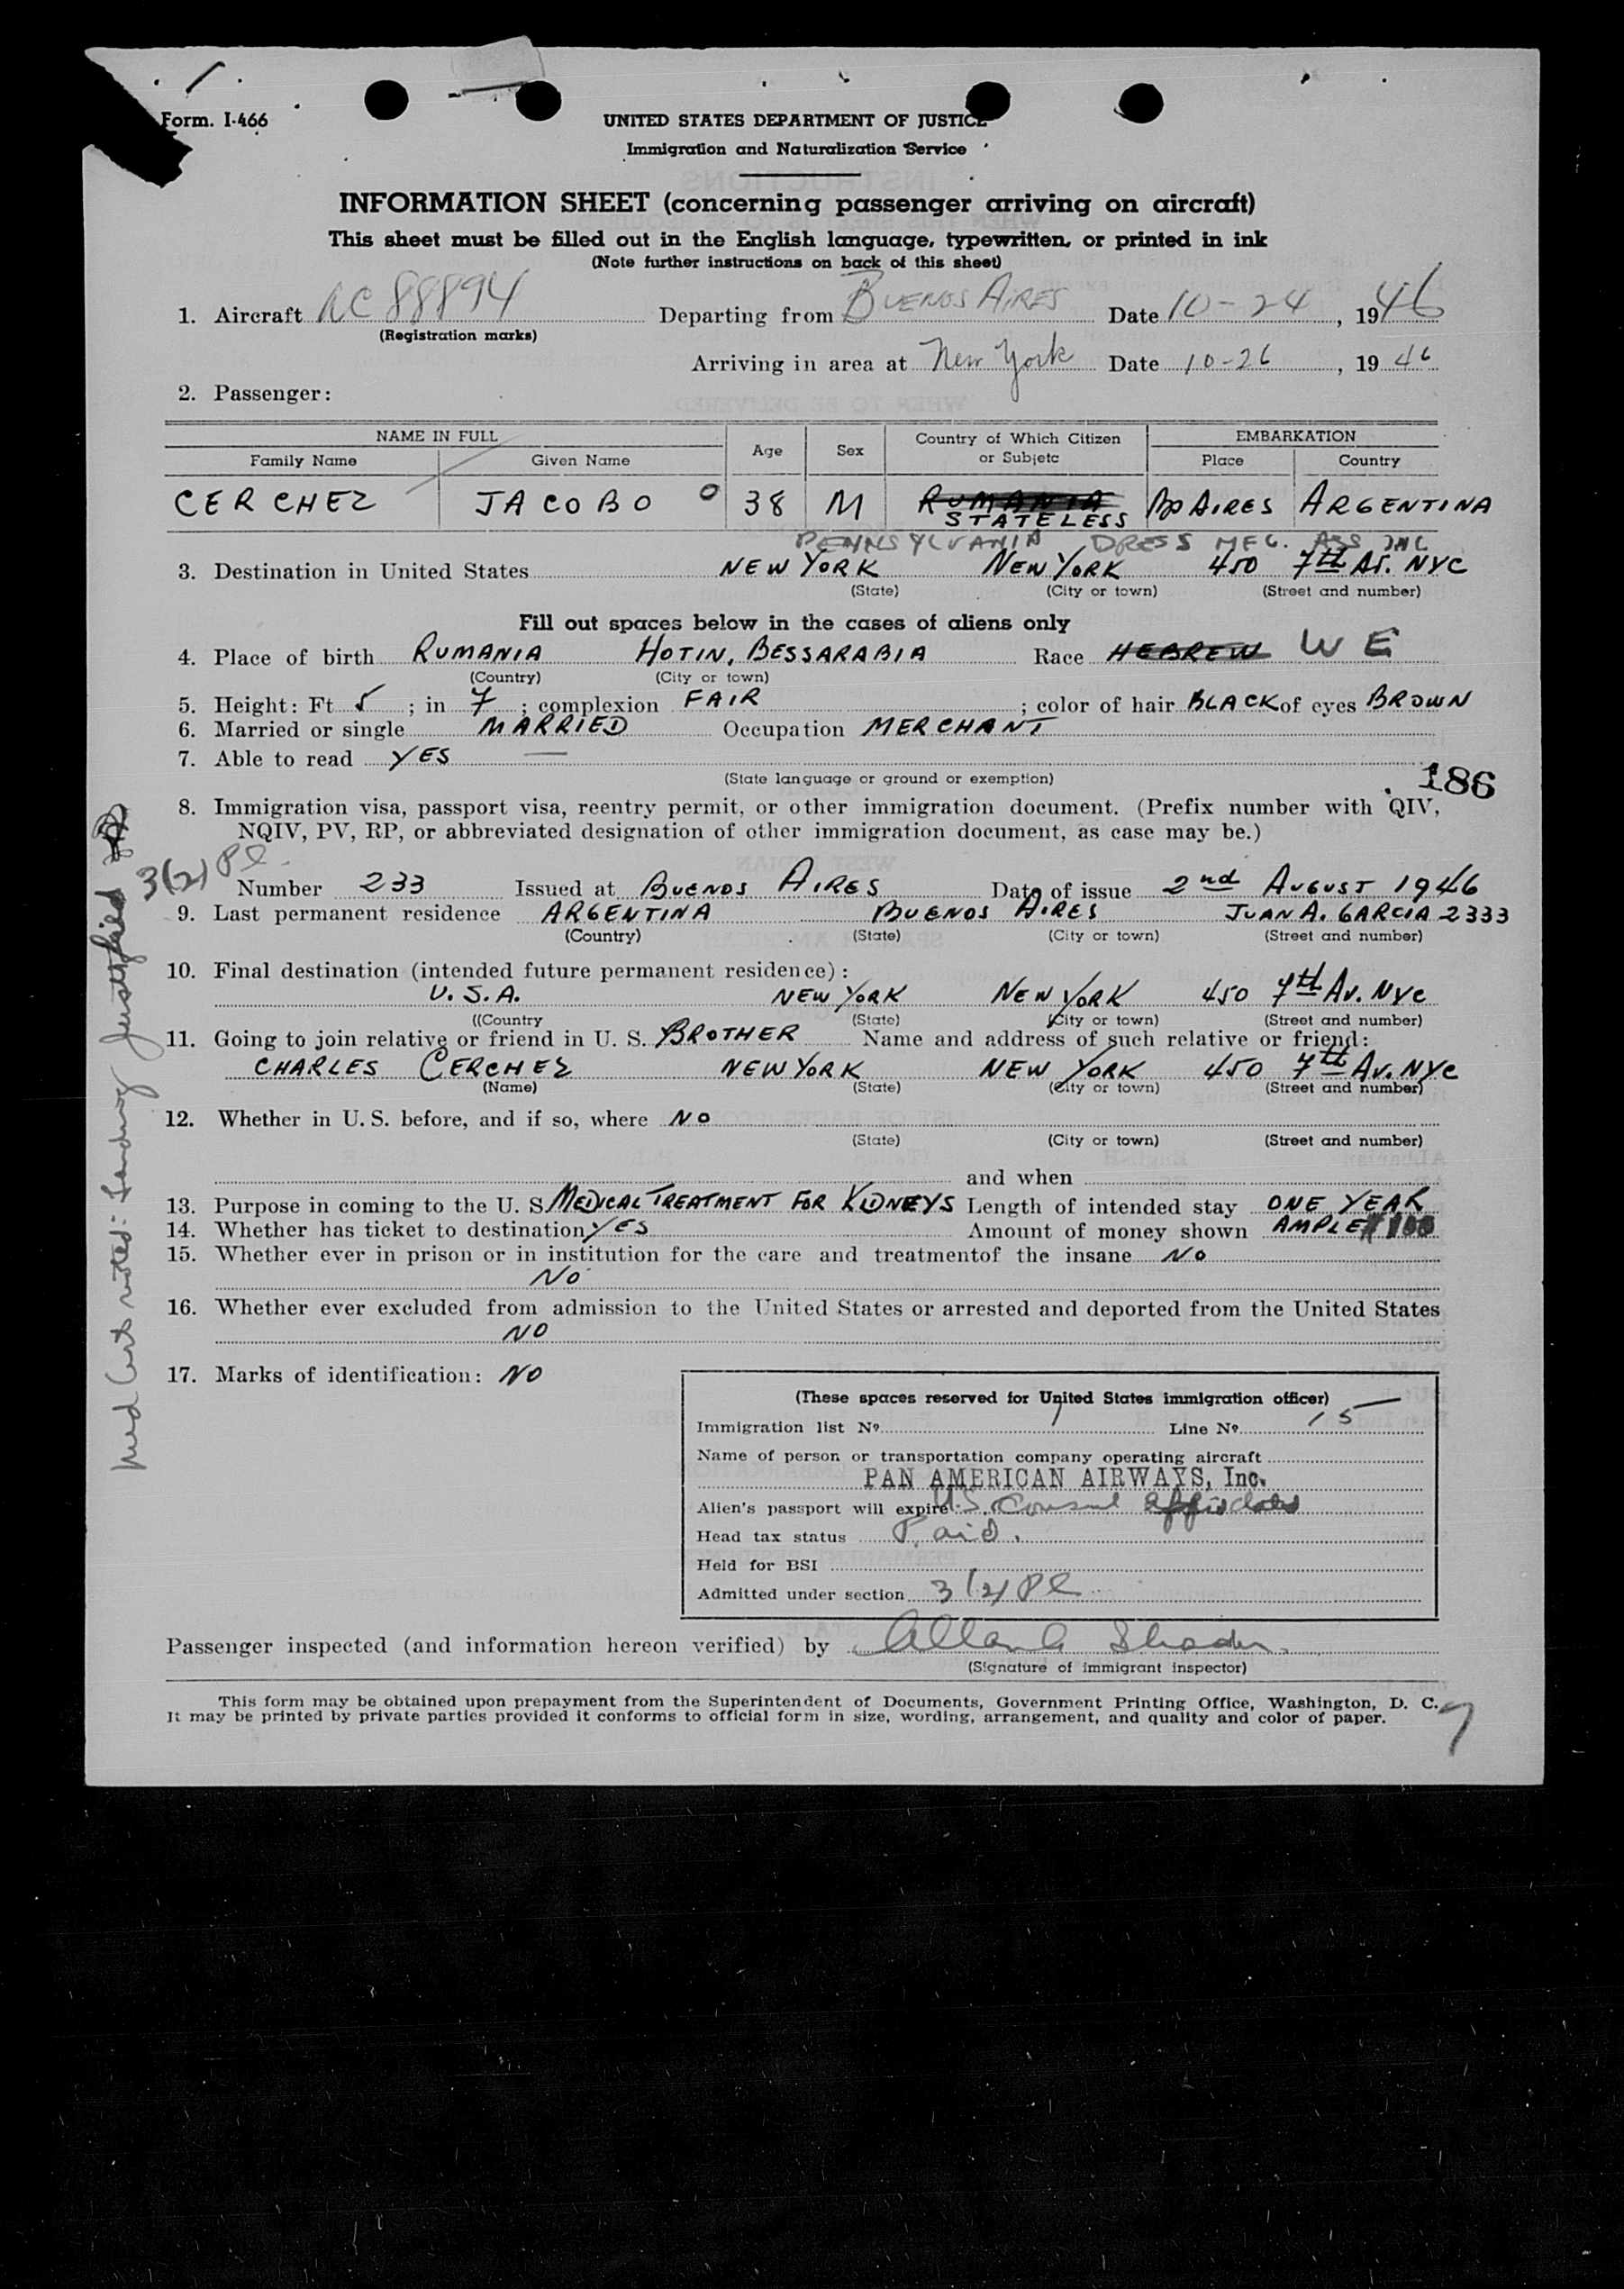 Form. I-466
UNITED STATES DEPARTMENT OF JUSTICE
Immigration and Naturalization Service
INFORMATION SHEET (concerning passenger arriving on aircraft)
This sheet must be filled out in the English language, typewritten, or printed in ink
(Note further instructions on back of this sheet)
1. Aircraft NC 88894 Departing from BUENOS AIRES Date 10-24, 1946
(Registration marks)
Arriving in area at New York Date 10-26, 1946
2. Passenger:
NAME IN FULL Age Sex Country of Which Citizen or Subjetc EMBARKATION
Family Name Given Name Place Country
CERCHEZ JACOBO 38 M RUMANIA STATELESS Bo AIRES ARGENTINA
PENNSYLVANIA DRESS MFG. ASS INC
3. Destination in United States NEW YORK NEW YORK 450 7th Av. NYC
(State) (City or town) (Street and number)
Fill out spaces below in the cases of aliens only
4. Place of birth RUMANIA HOTIN, BESSARABIA Race HEBREW W E
(Country) (City or town)
5. Height: Ft 5 ; in 7 ; complexion FAIR ; color of hair BLACK of eyes BROWN
6. Married or single MARRIED Occupation MERCHANT
7. Able to read YES —
(State language or ground or exemption)
186
8. Immigration visa, passport visa, reentry permit, or other immigration document. (Prefix number with QIV,
NQIV, PV, RP, or abbreviated designation of other immigration document, as case may be.)
3(2) Pl.
Number 233 Issued at BUENOS AIRES Date of issue 2nd AUGUST 1946
9. Last permanent residence ARGENTINA BUENOS AIRES JUAN A. GARCIA 2333
(Country) (State) (City or town) (Street and number)
10. Final destination (intended future permanent residence):
U.S.A. NEW YORK NEW YORK 450 7th Av. NYC
((Country (State) (City or town) (Street and number)
11. Going to join relative or friend in U. S. BROTHER Name and address of such relative or friend:
CHARLES CERCHEZ NEW YORK NEW YORK 450 7th Av. NYC
(Name) (State) (City or town) (Street and number)
12. Whether in U. S. before, and if so, where NO
(State) (City or town) (Street and number)
and when
13. Purpose in coming to the U. S. MEDICAL TREATMENT FOR KIDNEYS Length of intended stay ONE YEAR
14. Whether has ticket to destination YES Amount of money shown AMPLE 100
15. Whether ever in prison or in institution for the care and treatmentof the insane NO
NO
16. Whether ever excluded from admission to the United States or arrested and deported from the United States
NO
17. Marks of identification: NO
(These spaces reserved for United States immigration officer)
Immigration list No. 7 Line No. 15
Name of person or transportation company operating aircraft
PAN AMERICAN AIRWAYS, Inc.
Alien's passport will expire U.S. Consul
Head tax status Paid.
Held for BSI
Admitted under section 3(2) Pl
Passenger inspected (and information hereon verified) by Allan
(Signature of immigrant inspector)
This form may be obtained upon prepayment from the Superintendent of Documents, Government Printing Office, Washington, D. C.
It may be printed by private parties provided it conforms to official form in size, wording, arrangement, and quality and color of paper.
7
Med Certs noted: Landing Justified